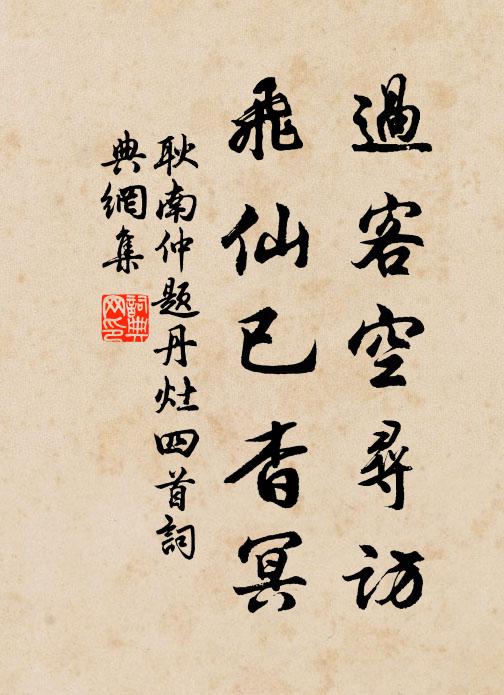 過客空尋訪
飛仙已杳冥
耿南仲題丹灶四首詞
典網集
詞典网印